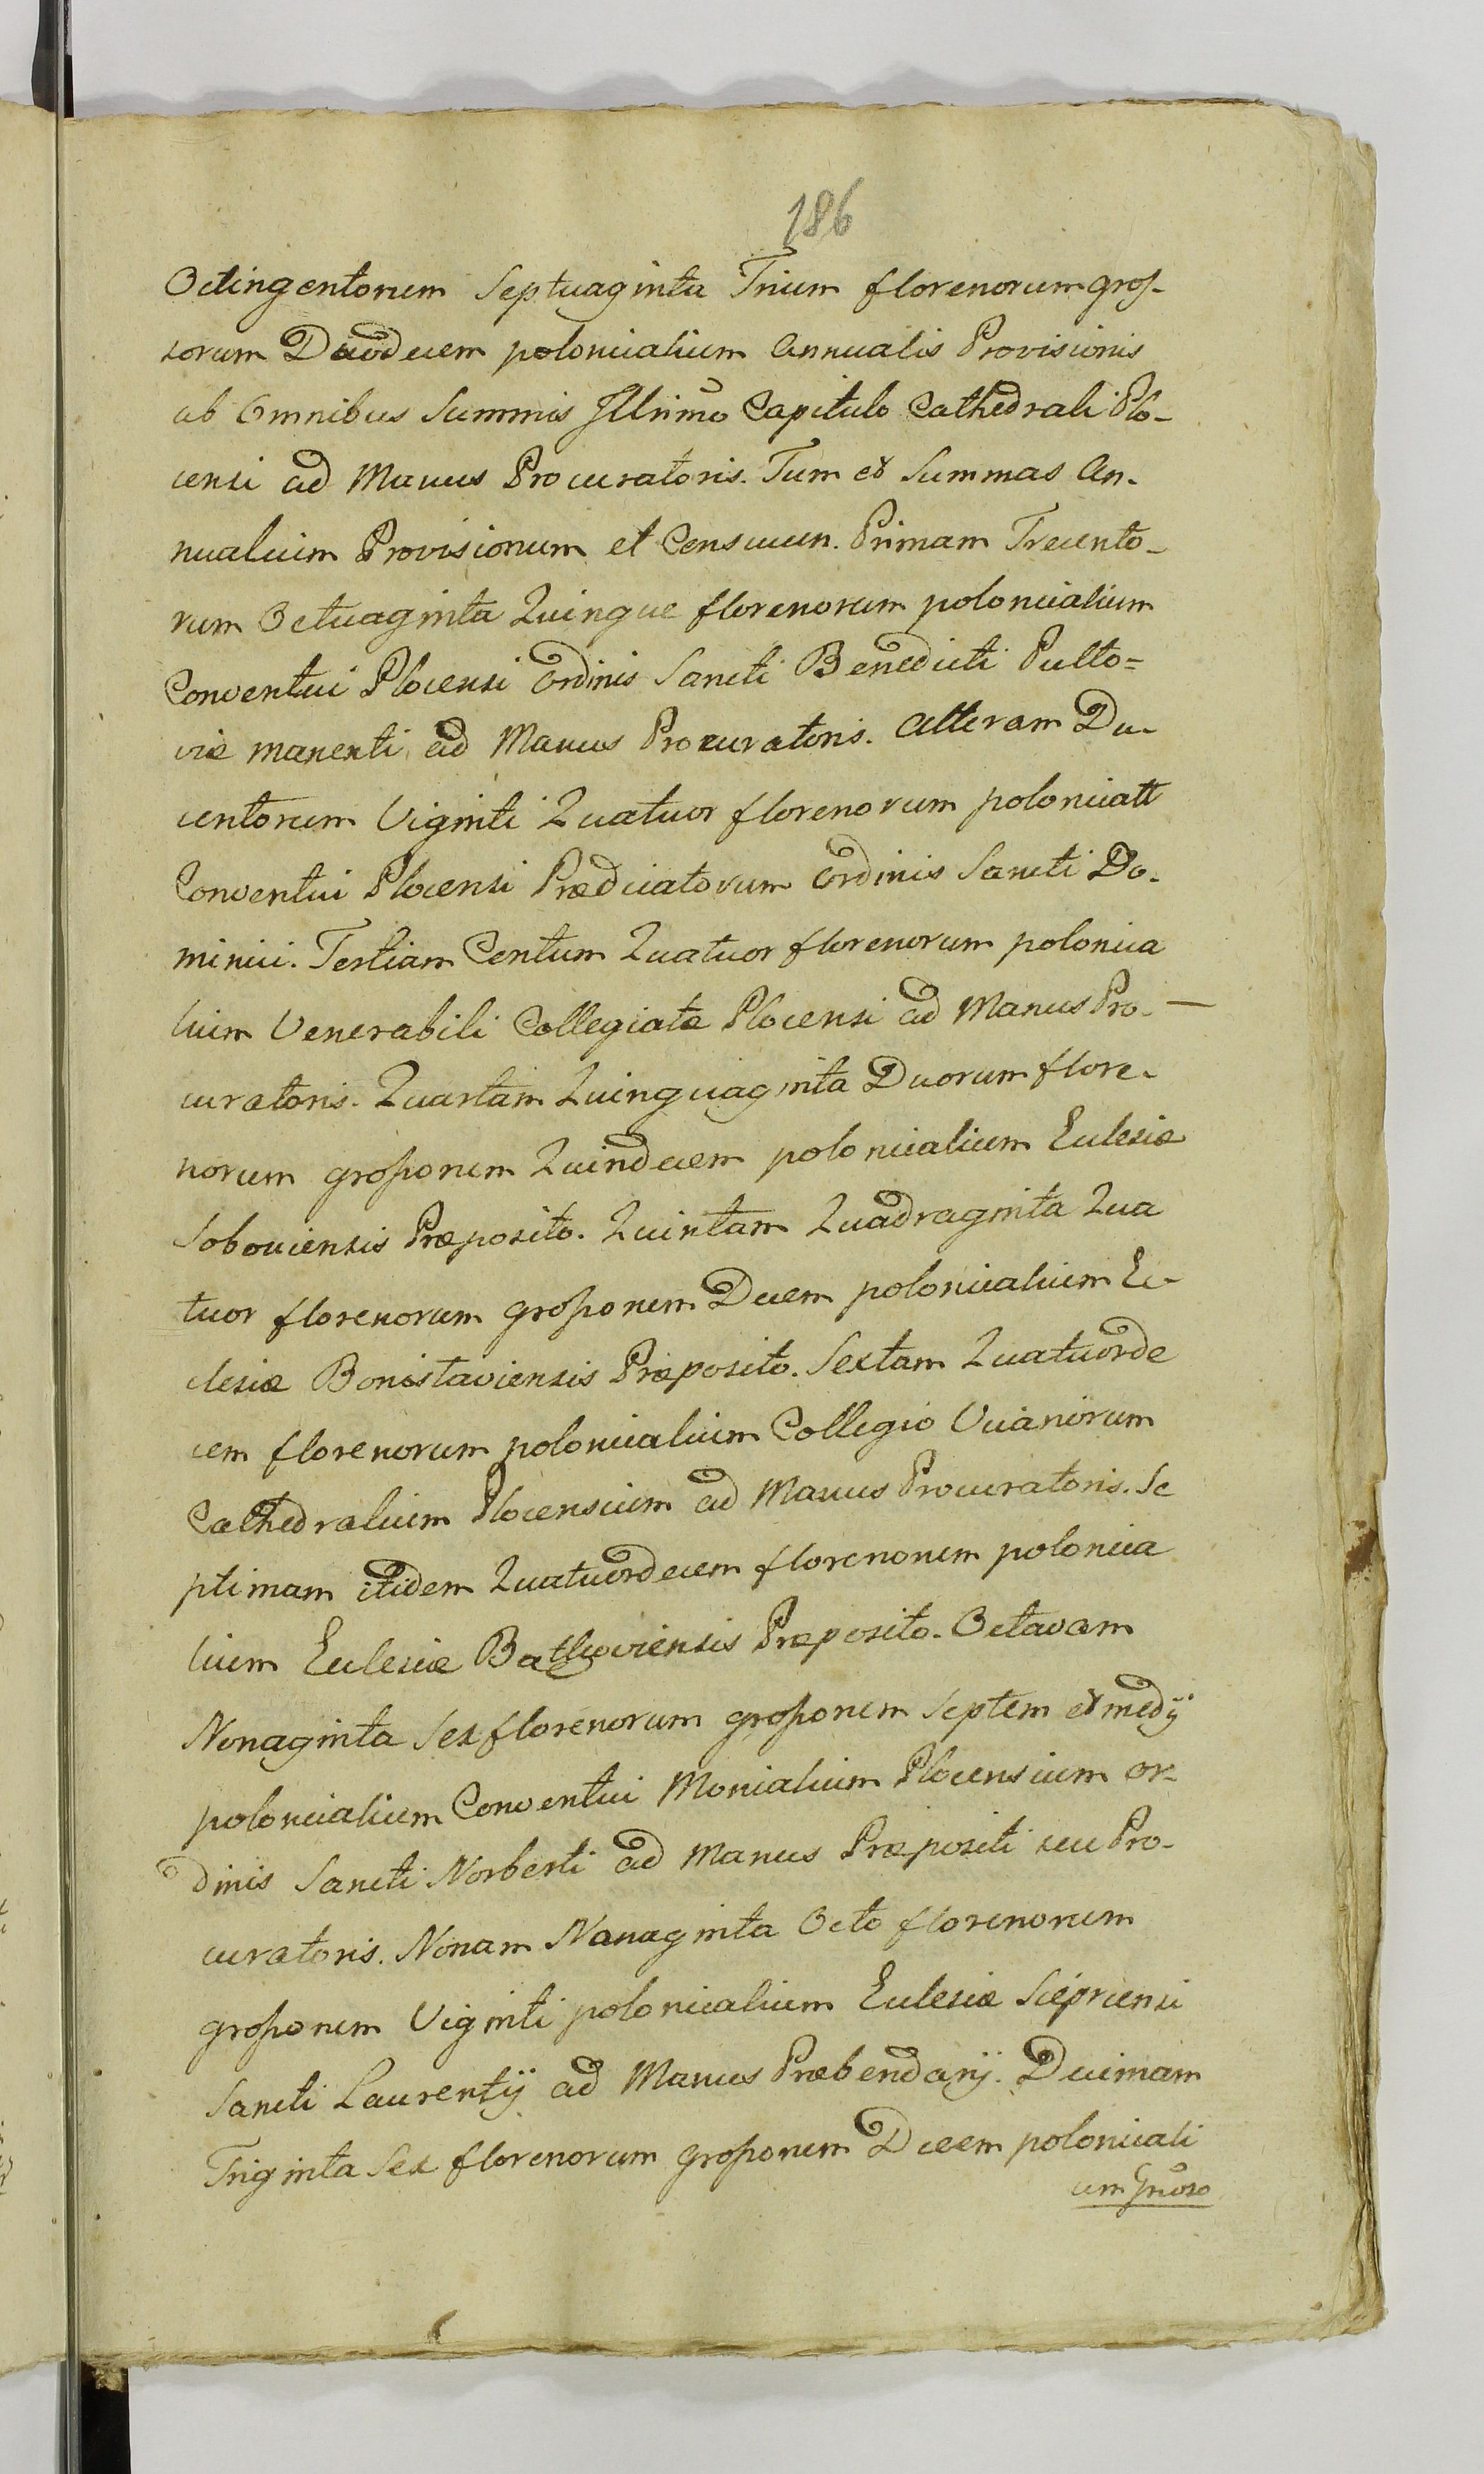 186
Octingentorum Septuaginta Trium florenorum gros-
sorum Duodecem polonicalium Annualis Provisionis
ab Omnibus Summis Illrimo Capitulo Cathedrali Plo-
censi ad Manus Procuratoris. Tum et Summas An-
nualium Provisionum et Censuum. Primam Trecento-
rum Octuaginta Quinque florenorum polonicalium
Conventui Plocensi Ordinis Sancti Benedicti Pulto=
viæ manenti ad Manus Procuratoris. Alteram Du-
centorum Viginti Quatuor florenorum polonicall
Conventui Plocensi Prædicatorum Ordinis Sancti Do-
minici. Tertiam Centum Quatuor florenorum polonica
lium Venerabili Collegiatæ Plocensi ad Manus Pro-
curatoris. Quartam Quinquaginta Duorum flore-
norum grossorum Quindecem polonicalium Ecclesiæ
Soboviensis Præposito. Quintam Quadraginta Qua
tuor florenorum grossorum Decem polonicalium Ec-
clesiæ Bonistaviensis Præposito. Sextam Quatuorde
cem florenorum polonicalium Collegio Vicariorum
Cathedralium Plocensium ad Manus Procuratoris. Se
ptimam itidem Quatuordecem florenorum polonica
lium Ecclesiæ Præposito. Octavam
Nonaginta Sex florenorum grossorum Septem et medij
polonicalium Conventui Monialium Plocensium or-
dinis Sancti Norberti ad Manus Præpositi seu Pro-
curatoris. Nonam Nonaginta Octo florenorum
grossorum Viginti polonicalium Ecclesiæ Sieprcensi
Sancti Laurentij ad Manus Præbendarij. Decimam
Triginta Sex florenorum grossorum Decem polonicali
um Gnoso